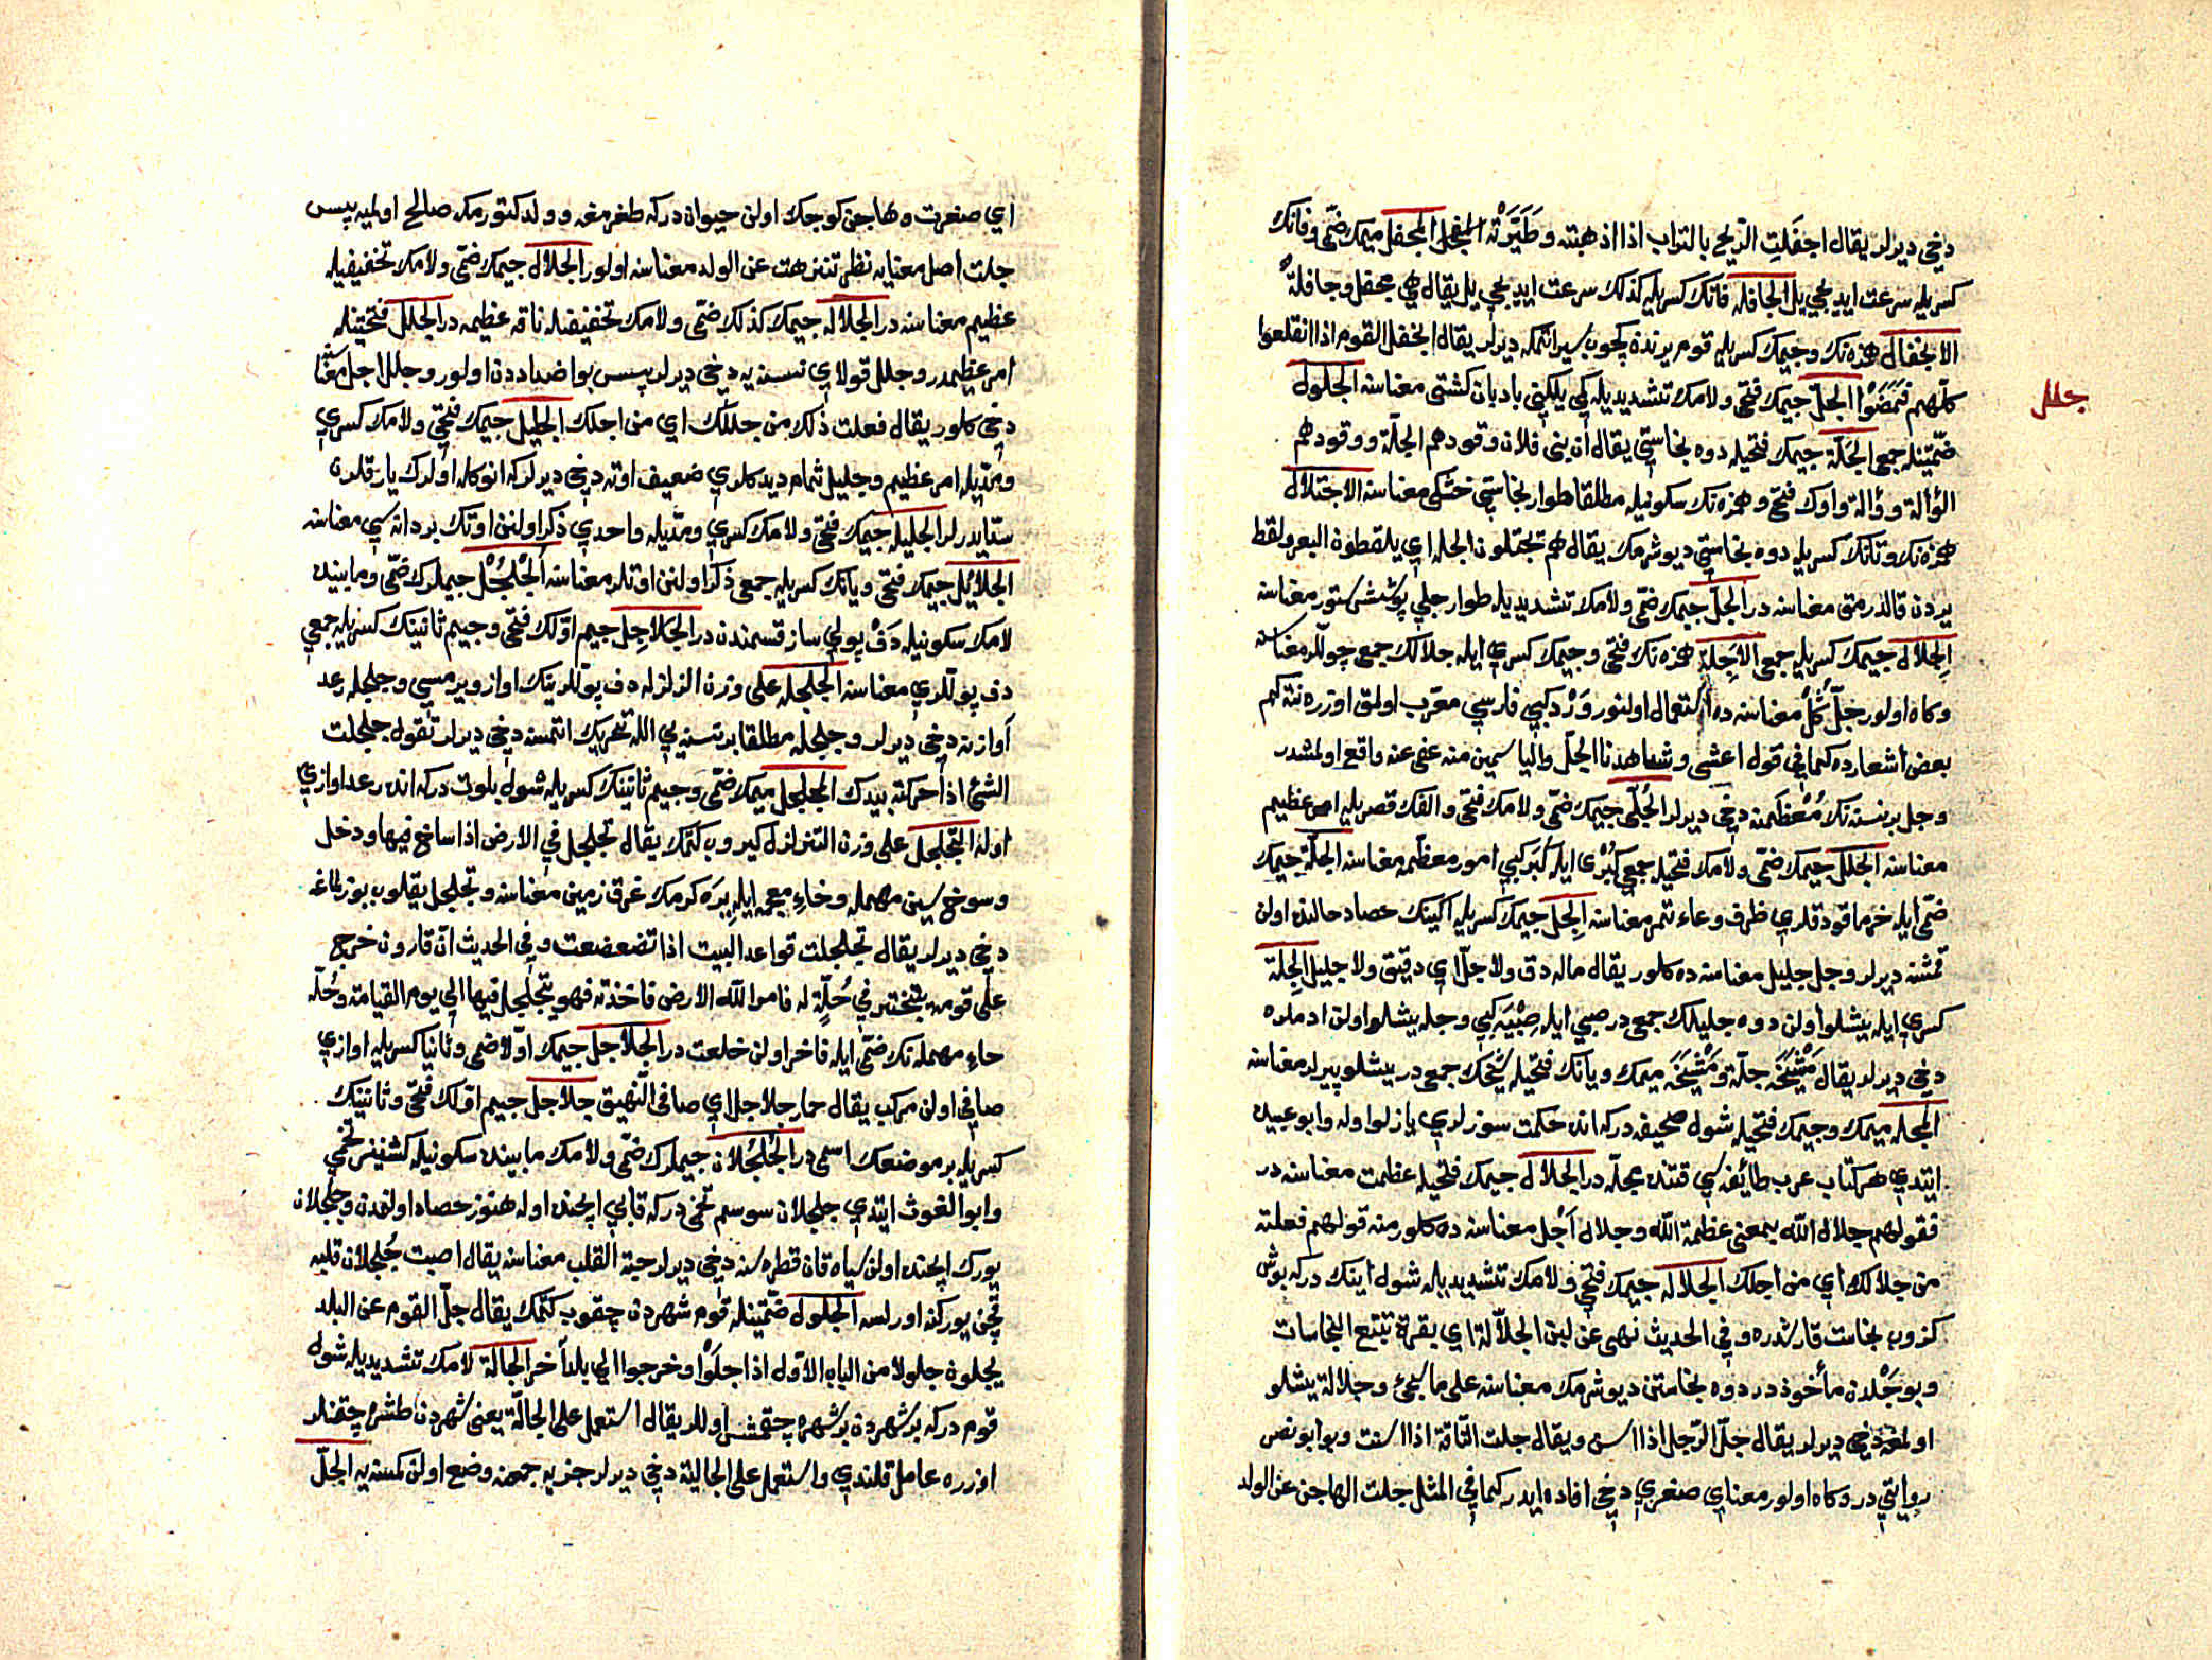 دخي ديرلر يقال اجفلت الريح بالتراب اذا اذهبته وطيرته المجفل ميمك ضمّي وفانك
كسريله سرعت ايديجي يل الجافله فانك كسريله كذلك سرعت ايديجي يل يقال هي مجفل وجافلة
الانجفال همزه نك وجيمك كسريله قوم يرندن كچوب سيراتمكه ديرلر يقال انجفل القوم اذا انقلعوا
كلّهم فمضوا الجلّ جيمك فتحي ولامك تشديديله كمي يلكني بادبان كشتى معناسنه الجلول
جلل
ضمّتينله جمعي الجلّة جيمك فتحيله دوه نجاستي يقال ان بنى فلان وقودهم الجلّة ووقودهم
الوألة ووألة واوك فتحي وهمزه نك سكونيله مطلقا طوار نجاستي خشكى معناسنه الاجتلال
همزه نك وتانك كسريله دوه نجاستي ديوشرمك يقال هم تجتلون الجله اي يلقطون البعر ولقط
يردن قالدرمق معناسنه در الجلّ جيمك ضمّي ولامك تشديديله طوار جلي پوشش ستور معناسنه
الجلال جيمك كسريله جمعي الاجلة همزه نك فتحي وجيمك كسري ايله جلالك جمعي چوللر معناسنه
وكاه اولور جلّ كل معناسنه ده استعمال اولنور ورد كبي فارسي معرّب اولمق اوزره نته كم
بعض اشعارده كما في قول اعشى وشاهدنا الجلّ والياسمين منه عفى عنه واقع اولمشدر
وجل بر نسنه نك معظمنه دخي ديرلر الجلّى جيمك ضمّي ولامك فتحي والفك قصريله امر عظيم
معناسنه الجلل جيمك ضمّي ولامك فتحيله جمعي كبرى ايله كبر كبي امور معظمه معناسنه الجلّة جيمك
ضمّي ايله خرما قودقلري ظرف وعاء تمر معناسنه الجلّ جيمك كسريله اكينك حصاد حالنده اولن
قمشنه ديرلر وجل جليل معناسنه ده كلور يقال ماله دق ولا جلّ اي دقيق ولا جليل الجلة
كسري ايله يشلو اولن دوه جليلك جمعي در صبي ايله صبيه كبي وجله يشلو اولن ادملره
دخي ديرلر يقال مشيخه جلّة ومشيخه ميمك ويانك فتحيله شيخك جمعي در يشلو پيرلر معناسنه
المجله ميمك وجيمك فتحيله شول صحيفه دركه انده حكمت سوزلري يازلو اوله وابو عبيد
ايتدي هر كتاب عرب طائفه سي قتنده مجلّه در الجلال جيمك فتحيله عظمت معناسنه در
فقولهم جلال الله بمعنى عظمة الله وجلال اجل معناسنه ده كلور منه قولهم فعلته
من جلالك اي من اجلك الجلاله جيمك فتحي ولامك تشديديله شول اينك دركه بوش
كزوب نجاست قارشدره وفي الحديث نهى عن لبن الجلالة اي بقرة تتبع النجاسات
وبو جلدن مأخوذ در دوه نجاستن ديوشرمك معناسنه على ما سبجئ وجلالة يشلو
اولمغه دخي ديرلر يقال جلّ الرجل اذا اسن ويقال جلت النّاقة اذا اسنت وبو ابو نصر
روايتي در وكاه اولور معناي صغري دخي افاده ايدر كما في المثل جلت الهاجن عن الولد
اي صغرت وهاجن كوجك اولن حيوان دركه طغرمغه وولد كتورمكه صالح اولميه پس
جلت اصل معنايه نظر تنزهت عن الولد معناسنه اولور الجلال جيمك ضمّي ولامك تخفيفيله
عظيم معناسنه در الجلاله جيمك كذلك ضمّي ولامك تخفيفيله ناقه عظيمه در الجلل فتحتينله
امر عظيمدر وجلل قولاي نسنه يه دخي ديرلر پس بو اضداددن اولور وجلل اجل معناسنه
دخي كلور يقال فعلت ذلك من جللك اي من اجلك الجليل جيمك فتحي ولامك كسري
ومدّيله امر عظيم وجليل ثمام ديدكلري ضعيف اوته دخي ديرلركه انوكله اولرك يارقلرن
ستايدرلر الجليله جيمك فتحي ولامك كسري ومدّيله واحدي ذكر اولنن اوتك بر دانه سي معناسنه
الجلائل جيمك فتحي ويانك كسريله جمعي ذكر اولنن اوتلر معناسنه الجلجل جيملرك ضمّي ومابينده
لامك سكونيله دف پولي ساز قسمندن در الجلاجل جيم اوّلك فتحي وجيم ثانينك كسريله جمعي
دف پوللري معناسنه الجلجله على وزن الزلزله دف پوللرينك اواز ويرمسي وجلجله رعد
آوازنه دخي ديرلر وجلجله مطلقا بر نسنه يي الله تحريك اتمسنه دخي ديرلر تقول جلجلت
الشئ اذا حركته بيدك المجلجل ميمك ضمّي وجيم ثانينك كسريله شول بلوت دركه انده رعد اوازي
اوله التجلجل على وزن التزلزل كيروب كتمك يقال تجلجل في الارض اذا ساخ فيها ودخل
وسوخ سين مهمله وخاء معجمه ايله يره كرمك غرق زمين معناسنه وتجلجل يقلوب بوزلمغه
دخي ديرلر يقال تجلجلت قواعد البيت اذا تضعضعت وفي الحديث ان قارون خرج
على قومه يتبختر في حلّة له فامر الله الارض فاخذته فهو يتجلجل فيها الي يوم القيامة وحلّه
حاء مهمله نك ضمّي ايله فاخر اولن خلعت در الجلاجل جيمك اولا ضمي وثانيا كسريله اوازي
صافي اولن مركب يقال حمار جلاجل اي صافي النهيق جلاجل جيم اوّلك فتحي وثانينك
كسريله بر موضعك اسمى در الجلجلان جيملرك ضمّي ولامك مابينده سكونيله كشفينز تخمي
وابو الغوث ايتدي جلجلان سوسم تخمي دركه قابي ايچنده اوله هنوز حصاد اولنمدن وجلجلان
يورك ايچنده اولن سياه قان قطره سنه دخي ديرلر حبة القلب معناسنه يقال اصبت جلجلان قلبه
قچن يوركنه اورلسه الجلول ضمّتينله قوم شهردن چقوب كتمك يقال جلّ القوم عن البلد
يجلون جلولا من الباب الاوّل اذا جلوا وخرجوا الي بلد آخر الجالّة لامك تشديديله شول
قوم دركه بر شهردن بر شهره چقمش اوللر يقال استعمل على الجالّة يعنى شهردن طشره چقنلر
اوزره عامل قلندي واستعمل على الجالية دخي ديرلر جزيه جمعنه وضع اولن كمسنه يه الجلّ